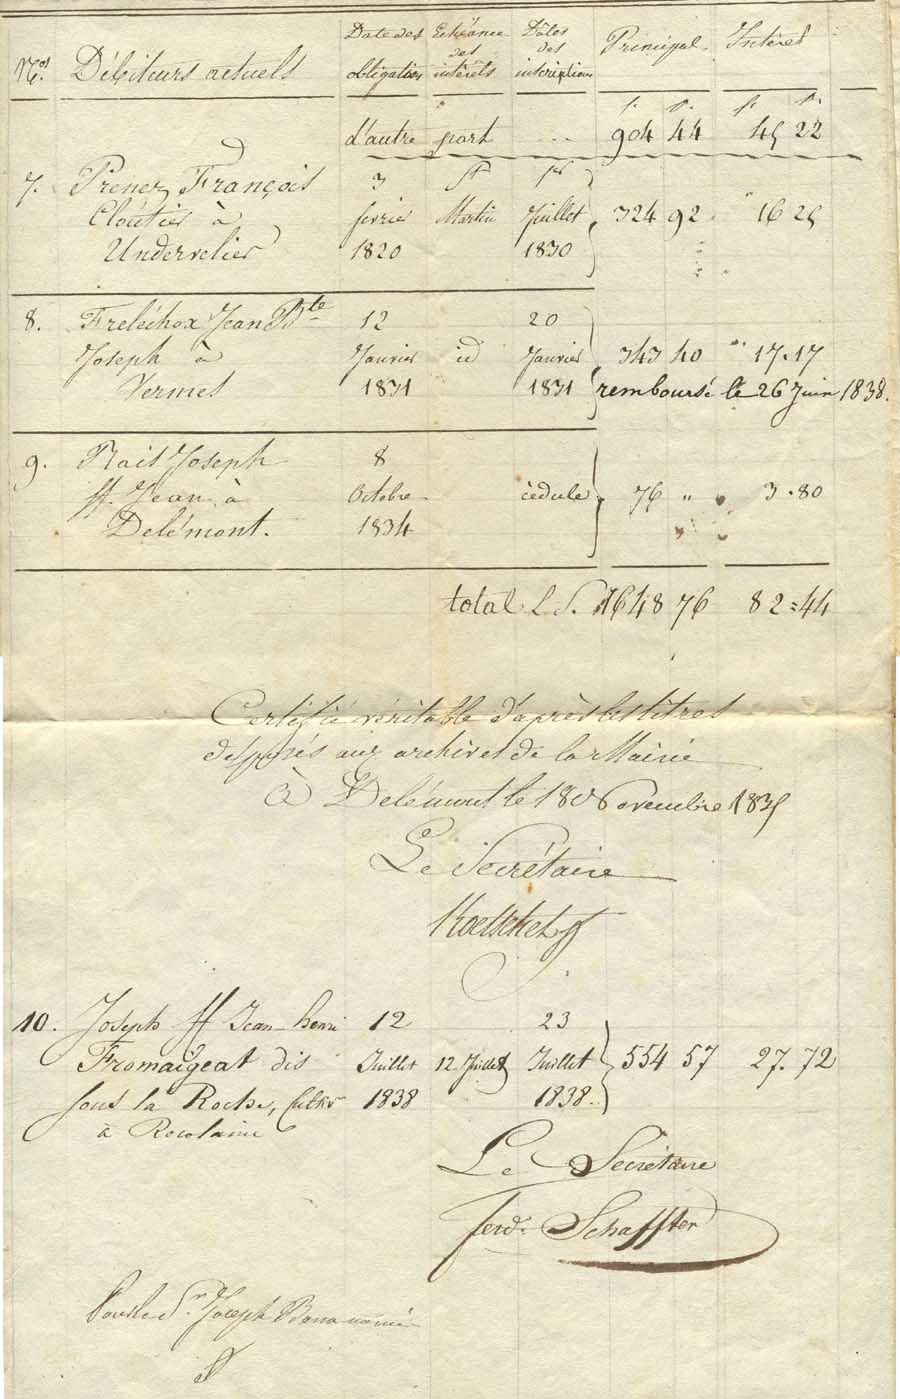 Nos. Débiteurs actuels Date des obligations Echéance des intérêts Dâtes des inscriptions Principal. Intéret
f. r. f. r.
d'autre part ... 904 44 45 22
7. Prenez François 3 St 1er
Cloutier à fevrier Martin Juillet 324 92 " 16 25
Undervelier 1820 1830
8. Freléchox Jean Bte 12 20
Joseph à Janvier id Janvier 343 40 " 17.17
Vermes 1831 1831 remboursé le 26 Juin 1838.
9. Rais Joseph 8
ff. Jean à Octobre cédule 76 " " 3.80
Delémont. 1834
total L S. 1648 76 82=44
Certifié véritable d'après les titres
déposés aux archives de la Mairie
à Delémont le 18 Novembre 1835
Le Secrétaire
Koetschet
10. Joseph ff Jean-henri 12 23
Fromaigeat dis Juillet 12 Juillet Juillet 554 57 27.72
sous la Roche, cultiv 1838 1838.
à
Le Secrétaire
Ferd. Schaffter
Pour le Sr. Joseph Bonanomi